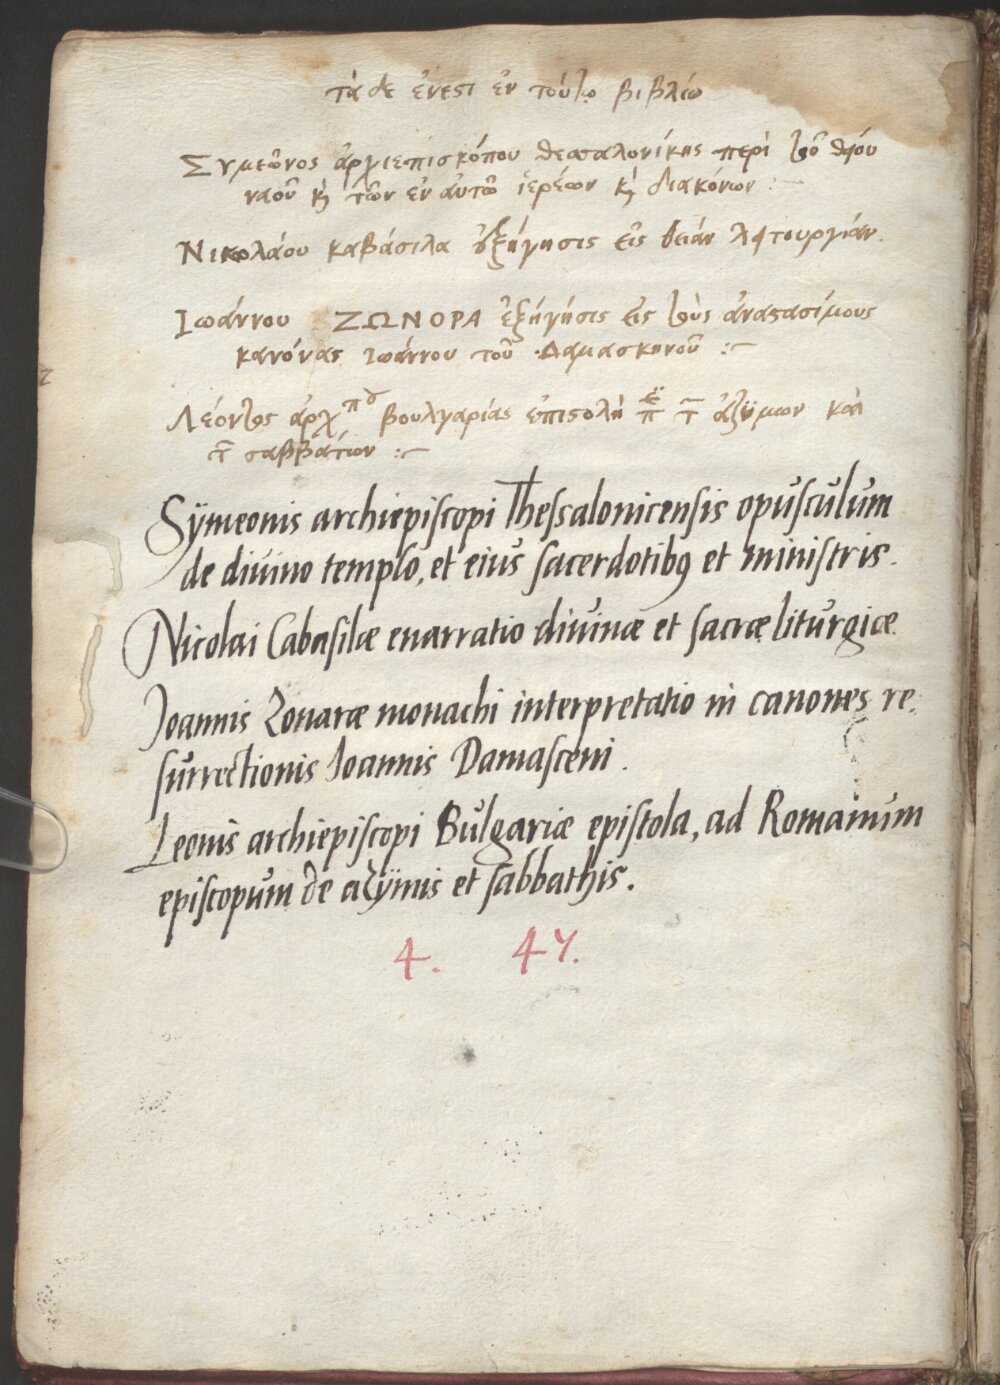 τὰ δε ἔνεστι ἐν τούτῳ βιβλίω
Συμεῶνος ἀρχιεπισκόπου θεσαλονίκης περὶ τοῦ θείου
ναοῦ κ̀ τῶν ἐν αὐτῶ ἱερέων κ̀ διακόνων :~
Νικολάου καβάσιλα ἐξήγησις εἰς θείαν λειτουργίαν.
Ιωάννου ΖΩΝΟΡΑ ἐξήγησις εἰς τοὺς ἀναστασίμους
κανόνας ιωάννου τοῦ Δαμασκηνοῦ :~
Λέοντος ἀρχ βουλγαρίας ἐπιστολὴ ἀζύμων καὶ
τ̅ σαββάτων :~
Sÿmeonis archiepiscopi Thessalonicensis opusculum
de diuino templo, et eius sacerdotibꝰ et ministris.
Nicolai Cabasilæ enarratio diuinæ et sacræ liturgiæ
Joannis Zonaræ monachi interpretatio in canones re-
surrectionis Joannis Damasceni.
Leonis archiepiscopi Bulgariæ epistola, ad Romanum
episcopum de azÿmis et sabbathis.
4. 47.